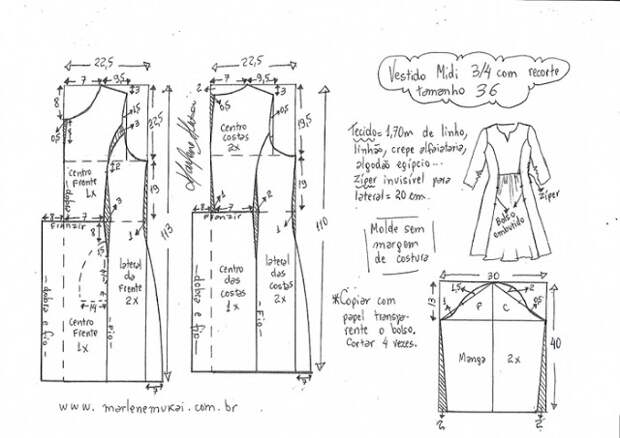 Vestido Midi 3/4 com recorte
tamanho 36
Tecido = 1,70m de linho,
linhão, crepe alfaiataria,
algodão egípcio...
Zíper invisível para
lateral = 20 cm.
Molde sem
margem
de costura
*Copiar com
papel transpa-
rente o bolso.
Cortar 4 vezes.
Zíper
Bolso
embutido
22,5
7
9,5
3
8
0,5
1,5
3
22,5
2
19
Centro
Frente
1x
dobra
3
1
113
8
7
Franzir
8
1,5
14
lateral
da
Frente
2x
Centro
Frente
1x
dobra e fio
Fio
7
22,5
2
7
9,5
3
0,5
0,5
19,5
Centro
costas
2x
Marlene Mukai
19
1
2
1
110
8
7
Franzir
Centro
das
costas
1x
lateral
das
costas
2x
dobra e fio
Fio
7
30
13
1
1,5
2
0,5
P
C
40
Manga
2x
2
2
www.marlenemukai.com.br